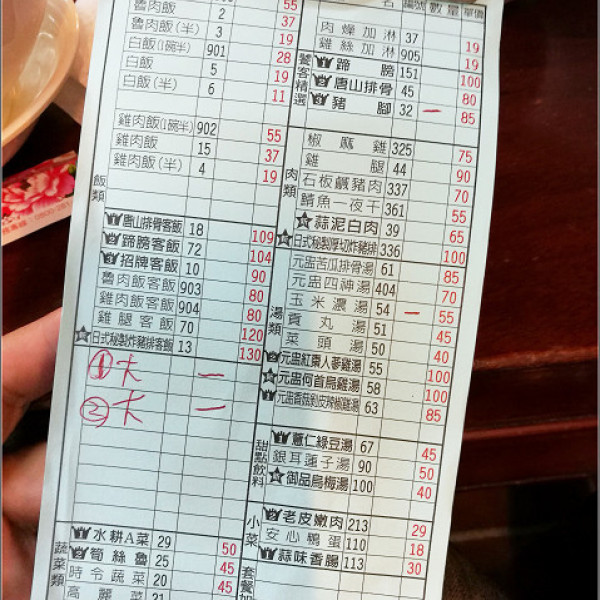 55
魯肉飯 2 37
魯肉飯(半) 3 19
白飯(1碗半) 901 28
白飯 5 19
白飯(半) 6 11
雞肉飯(1碗半) 902 55
雞肉飯 15 37
雞肉飯(半) 4 19
飯類
1 唐山排骨客飯 18 109
2 蹄膀客飯 72 104
3 招牌客飯 10 90
魯肉飯客飯 903 80
雞肉飯客飯 904 80
雞腿客飯 70 120
日式秘製炸豬排客飯 13 130
①卡 一
②卡 一
蔬菜類
1 水耕A菜 29 50
2 筍絲魯 25 45
時令蔬菜 20 45
高麗菜 21
名 編號 數量 單價
肉燥加淋 37 19
雞絲加淋 905 19
饕客精選
1 蹄膀 151 100
2 唐山排骨 45 80
3 豬腳 32 一 85
肉類
椒麻雞 325 75
雞腿 44 90
石板鹹豬肉 337 70
鯖魚一夜干 361 55
蒜泥白肉 39 65
日式秘製厚切炸豬排 336 100
湯類
元盅苦瓜排骨湯 61 85
元盅四神湯 404 70
玉米濃湯 54 一 55
貢丸湯 51 45
菜頭湯 50 40
元盅紅棗人蔘雞湯 55 100
元盅何首烏雞湯 58 100
元盅香菇剝皮辣椒雞湯 63 85
甜點飲料
1 薏仁綠豆湯 67 45
銀耳蓮子湯 90 50
御品烏梅湯 100 40
小菜
2 老皮嫩肉 213 29
安心鴨蛋 110 18
1 蒜味香腸 113 30
套餐加